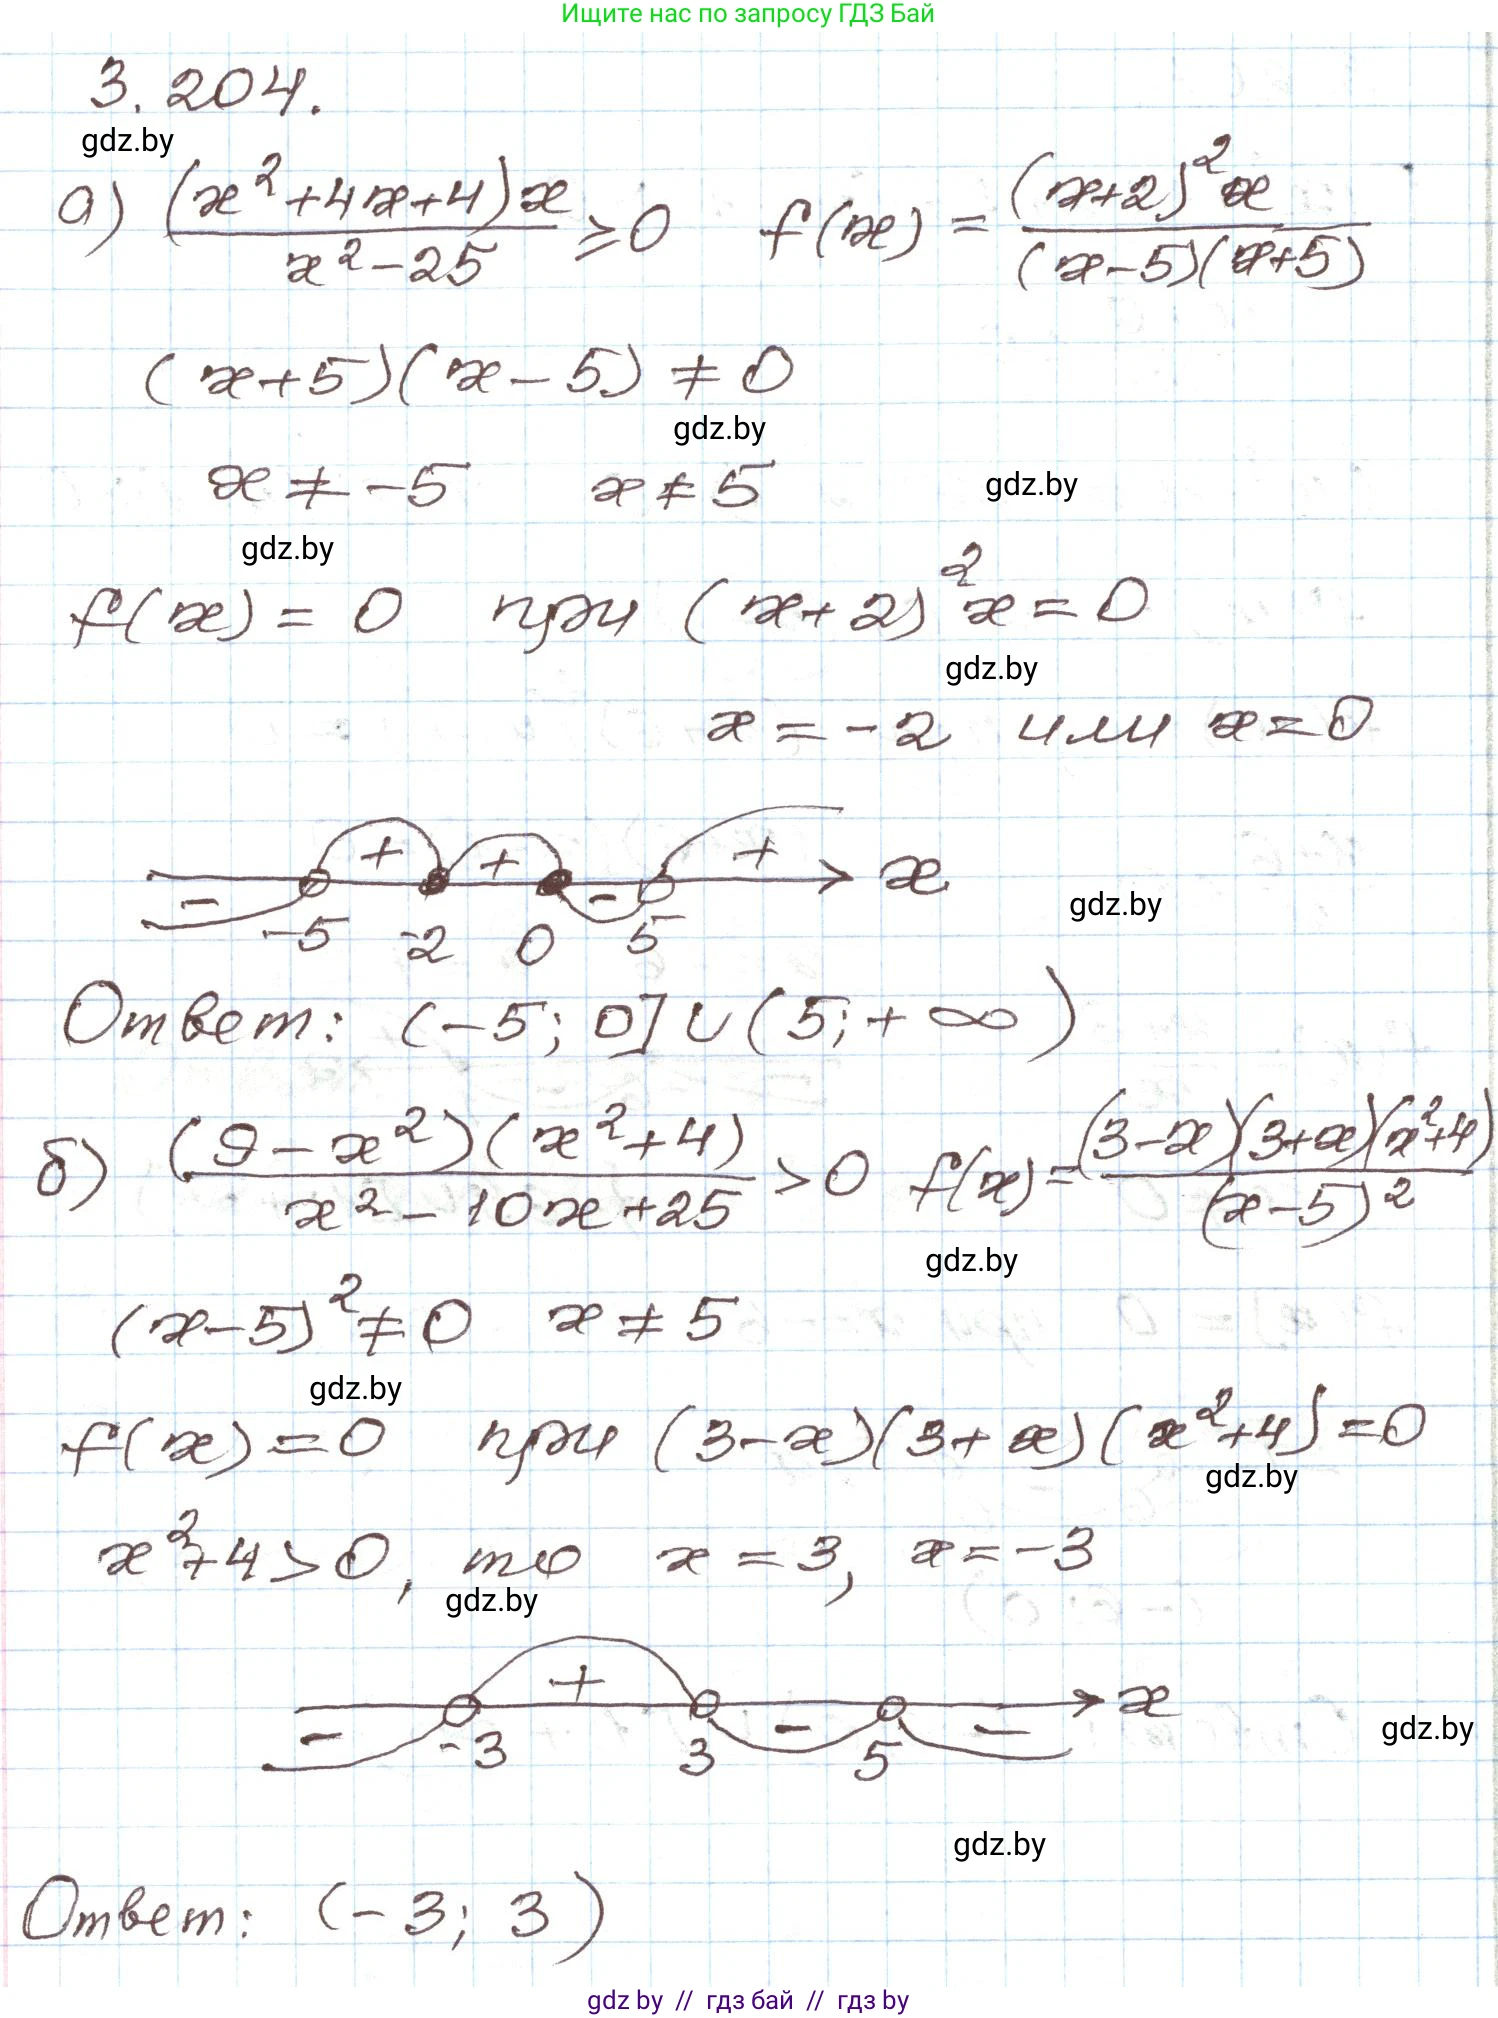 Ищите нас по запросу ГДЗ Бай
3.204.
gdz.by
а) (x²+4x+4)x / x²-25 ≥0 f(x) = (x+2)²x / (x-5)(x+5)
(x+5)(x-5) ≠ 0
gdz.by
x ≠ -5 x ≠ 5
gdz.by
gdz.by
f(x) = 0 при (x+2)²x=0
gdz.by
x = -2 или x=0
- + + - + x
-5 -2 0 5
gdz.by
Ответ: (-5; 0]∪(5;+∞)
б) (9-x²)(x²+4) / x²-10x+25 >0 f(x)= (3-x)(3+x)(x²+4) / (x-5)²
gdz.by
(x-5)²≠0 x ≠ 5
gdz.by
f(x)=0 при (3-x)(3+x)(x²+4)=0
gdz.by
x²+4>0, то x = 3, x=-3
gdz.by
- + - - x
-3 3 5
gdz.by
gdz.by
Ответ: (-3; 3)
gdz by // гдз бай // гдз by